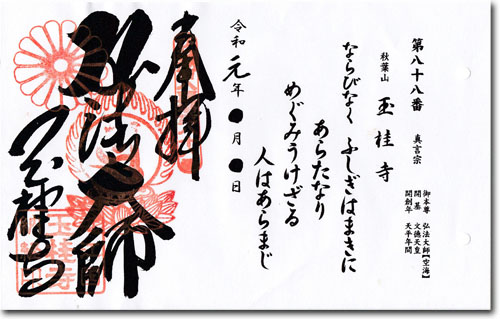 第八十八番
真言宗
秋葉山
玉桂寺
御本尊 弘法大師【空海】
開基 文徳天皇
開創年 天平年間
ならびなく ふしぎはまきに
あらたなり
めぐみうけざる
人はあらまじ
令和元年●月●日
奉拝
弘法大師
玉桂寺